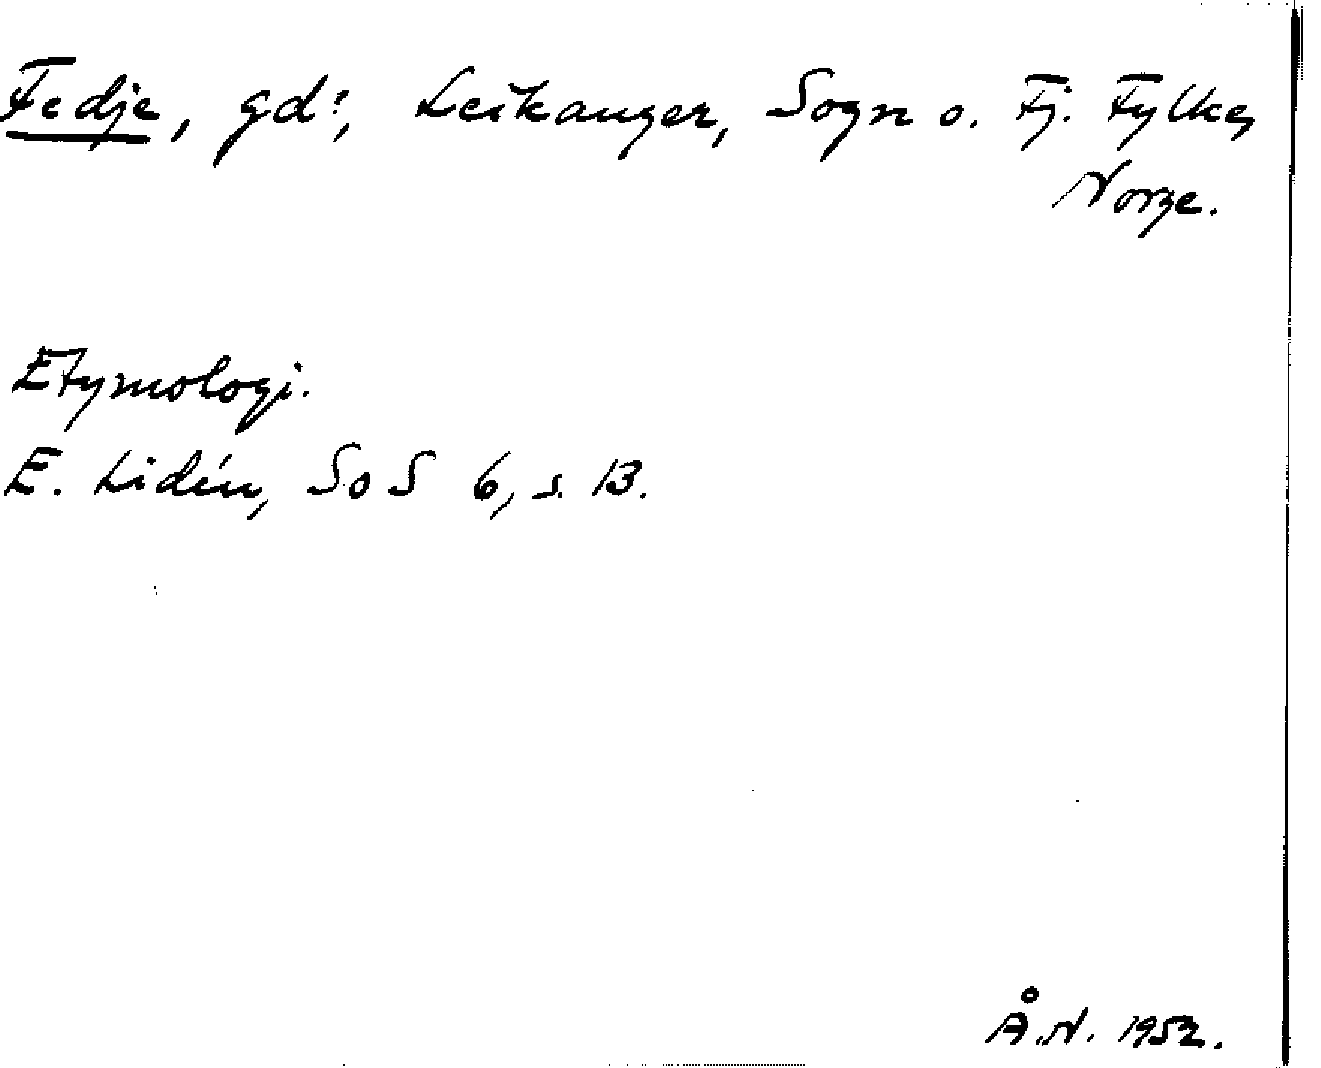 Fedje, gd:, Leikanger, Sogn o. Fj. Fylke,
Norge.
Etymologi.
E. Lidén, SoS 6, s. 13.
Å.N. 1952.